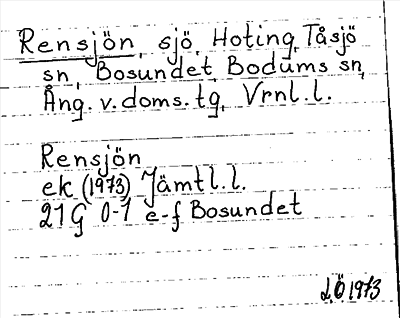 Rensjön, sjö, Hoting, Tåsjö
sn, Bosundet, Bodums sn,
Ång. v. doms. tg, Vrnl. l.
Rensjön
ek (1973) Jämtl. l.
21G 0-1 e-f Bosundet
LÖ 1973